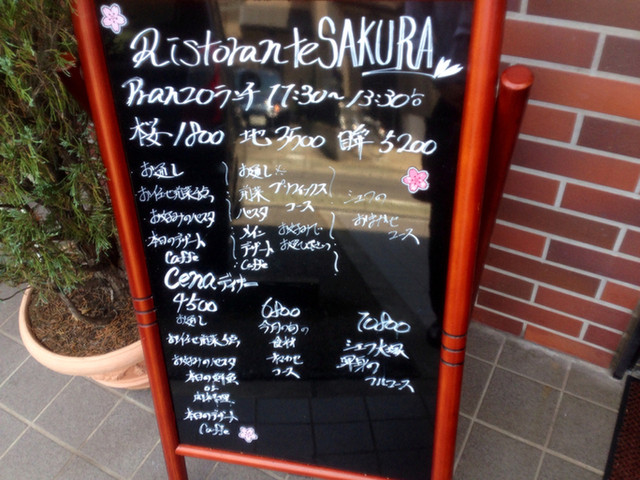 Ristorante SAKURA
Pranzo ランチ 11:30〜13:30
桜 1800 地 3500 瞬 5200
お通し
お任せ前菜
お好みのパスタ
本日のデザート
Caffe
お通し
前菜
パスタ
メイン
デザート
Caffe
プリフィックス
コース
お好みで
シェフの
おまかせ
コース
Cena ディナー
4500
お通し
お任せ前菜
お好みのパスタ
本日の鮮魚
or
肉料理
本日のデザート
Caffe
6800
今月の旬の
食材
おまかせ
コース
10800
シェフ大塚
渾身の
フルコース